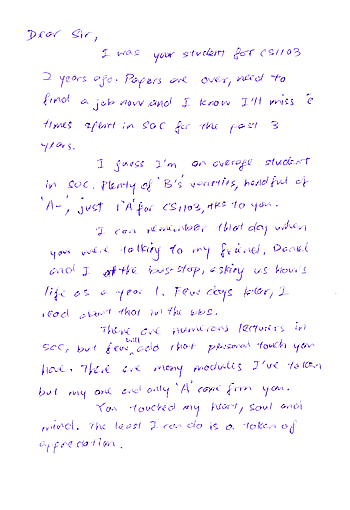 Dear Sir,
I was your student for CS1103
2 years ago. Papers are over, need to
find a job now and I know I'll miss e
times spent in SOC for the past 3
years.
I guess I'm an average student
in SOC. Plenty of 'B's varieties, handful of
'A-', just 1 'A' for CS1103, tks to you.
I can remember that day when
you were talking to my friend, Daniel
and I at the bus-stop, asking us how's
life as a year 1. Few days later, I
read about that in the
There are numerous lecturers in
SOC, but few will add that personal touch you
have. There are many modules I've taken
but my one and only 'A' came from you.
You touched my heart, soul and
mind. The least I can do is a token of
appreciation.